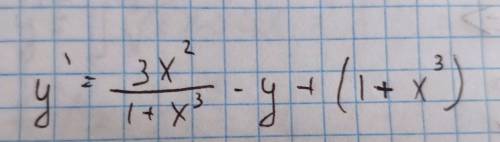 y' = \frac{3x^2}{1+x^3} - y + (1+x^3)